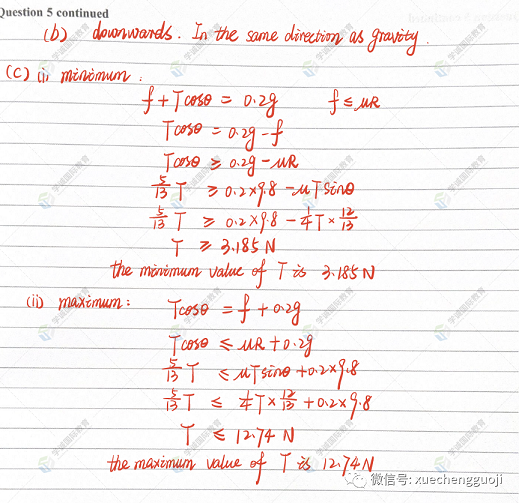 Question 5 continued
(b) downwards. In the same direction as gravity.
(c) (i) minimum:
f + Tcosθ = 0.2g f ≤ μR
Tcosθ = 0.2g - f
Tcosθ ≥ 0.2g - μR
5/13 T ≥ 0.2×9.8 - μTsinθ
5/13 T ≥ 0.2×9.8 - 1/4 T × 12/13
T ≥ 3.185 N
the minimum value of T is 3.185N
(ii) maximum:
Tcosθ = f + 0.2g
Tcosθ ≤ μR + 0.2g
5/13 T ≤ μTsinθ + 0.2×9.8
5/13 T ≤ 1/4 T × 12/13 + 0.2×9.8
T ≤ 12.74 N
the maximum value of T is 12.74N
学诚国际教育
微信号: xuechengguoji